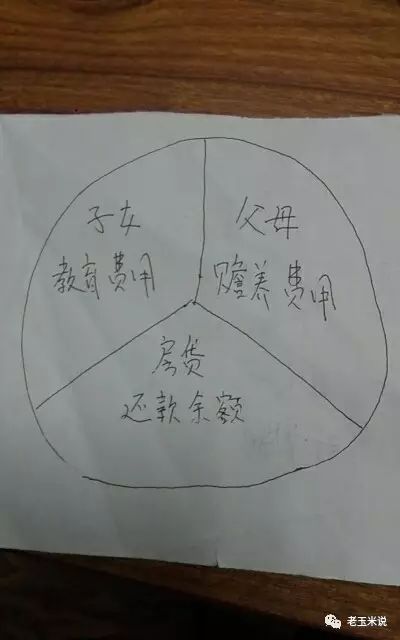 子女
教育费用
父母
赡养费用
房贷
还款余额
老玉米说